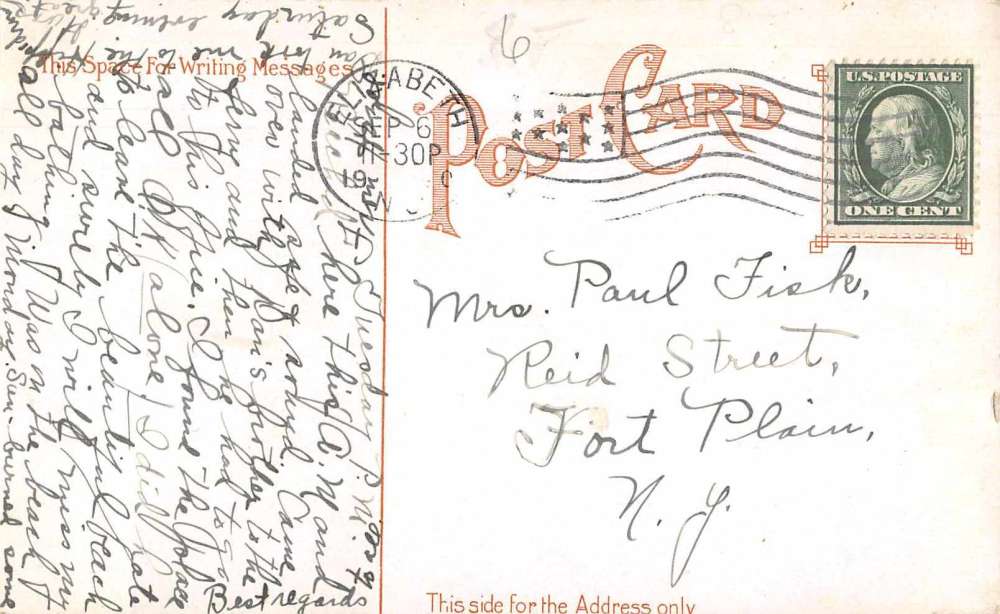 This Space For Writing Messages
POST CARD
ELIZABETH
SEP 6
11-30P
19
N
U.S. POSTAGE
ONE CENT
6
Tuesday P.M.
here this A.M. and
landed safe & sound. Came
over with Dan's brother to the
ferry and then he had to go
to his office. I found the place
all O.K. alone. I did hate
to leave the beautiful beach
and surely I will miss my
bathing. Was on the beach
all day Monday. Sun-burned some
Dan took me to the
Saturday evening great
Best regards
Mrs. Paul Fisk,
Reid Street,
Fort Plain,
N. Y.
This side for the Address only